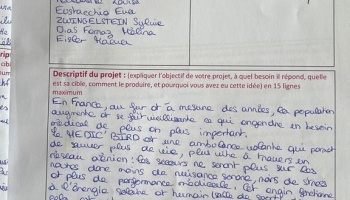 Louisa
Eustacchio Eva
ZWINGELSTEIN Sylvie
Dias Farnoz Mélina
Eisler
Descriptif du projet : (expliquer l'objectif de votre projet, à quel besoin il répond, quelle
est sa cible, comment le produire, et pourquoi vous avez eu cette idée) en 15 lignes
maximum
En France, au fur et à mesure des années, la population
augmente et se fait vieillissante ce qui engendre en besoin
médical de plus en plus important.
Le MEDIC'BIRD est une ambulance volante qui permet
de sauver plus de vie, plus vite à travers un
réseau aérien : les secours ne seront plus sur les
routes donc moins de nuisance sonore, moins de stress
et plus de performance médicale. Cet engin fonctionne
à l'énergie solaire et humain (salle de sport)